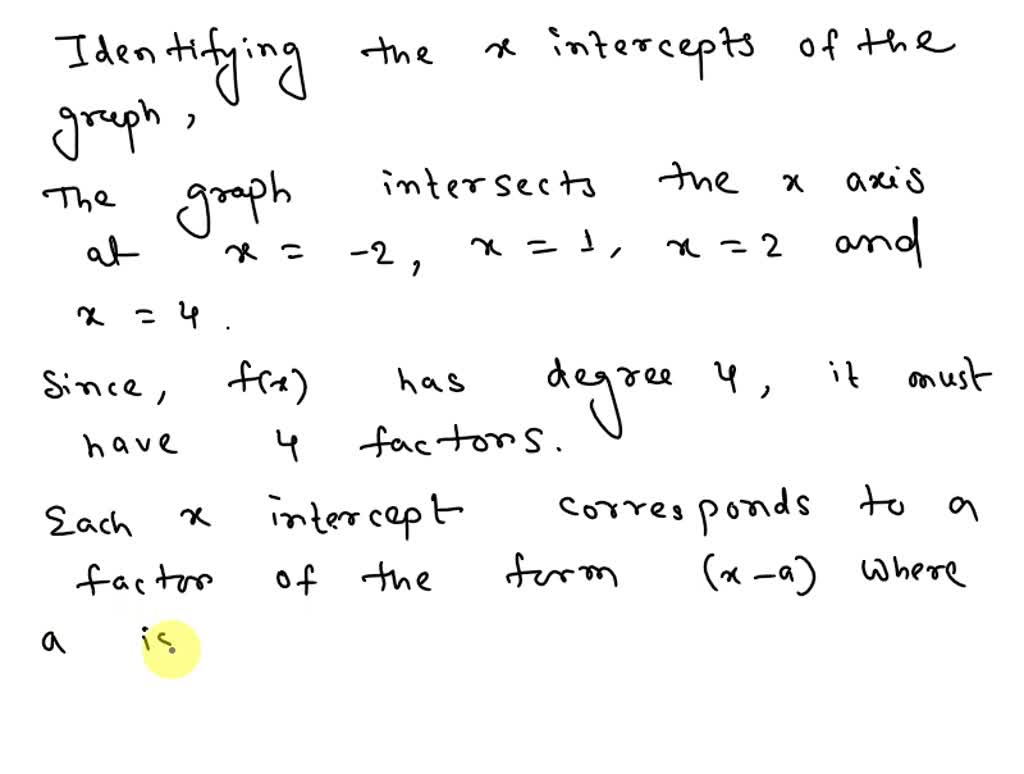 Identifying the x intercepts of the
graph,
The graph intersects the x axis
at x = -2, x = 1, x = 2 and
x = 4.
Since, f(x) has degree 4, it must
have 4 factors.
Each x intercept corresponds to a
factor of the form (x-a) where
a is